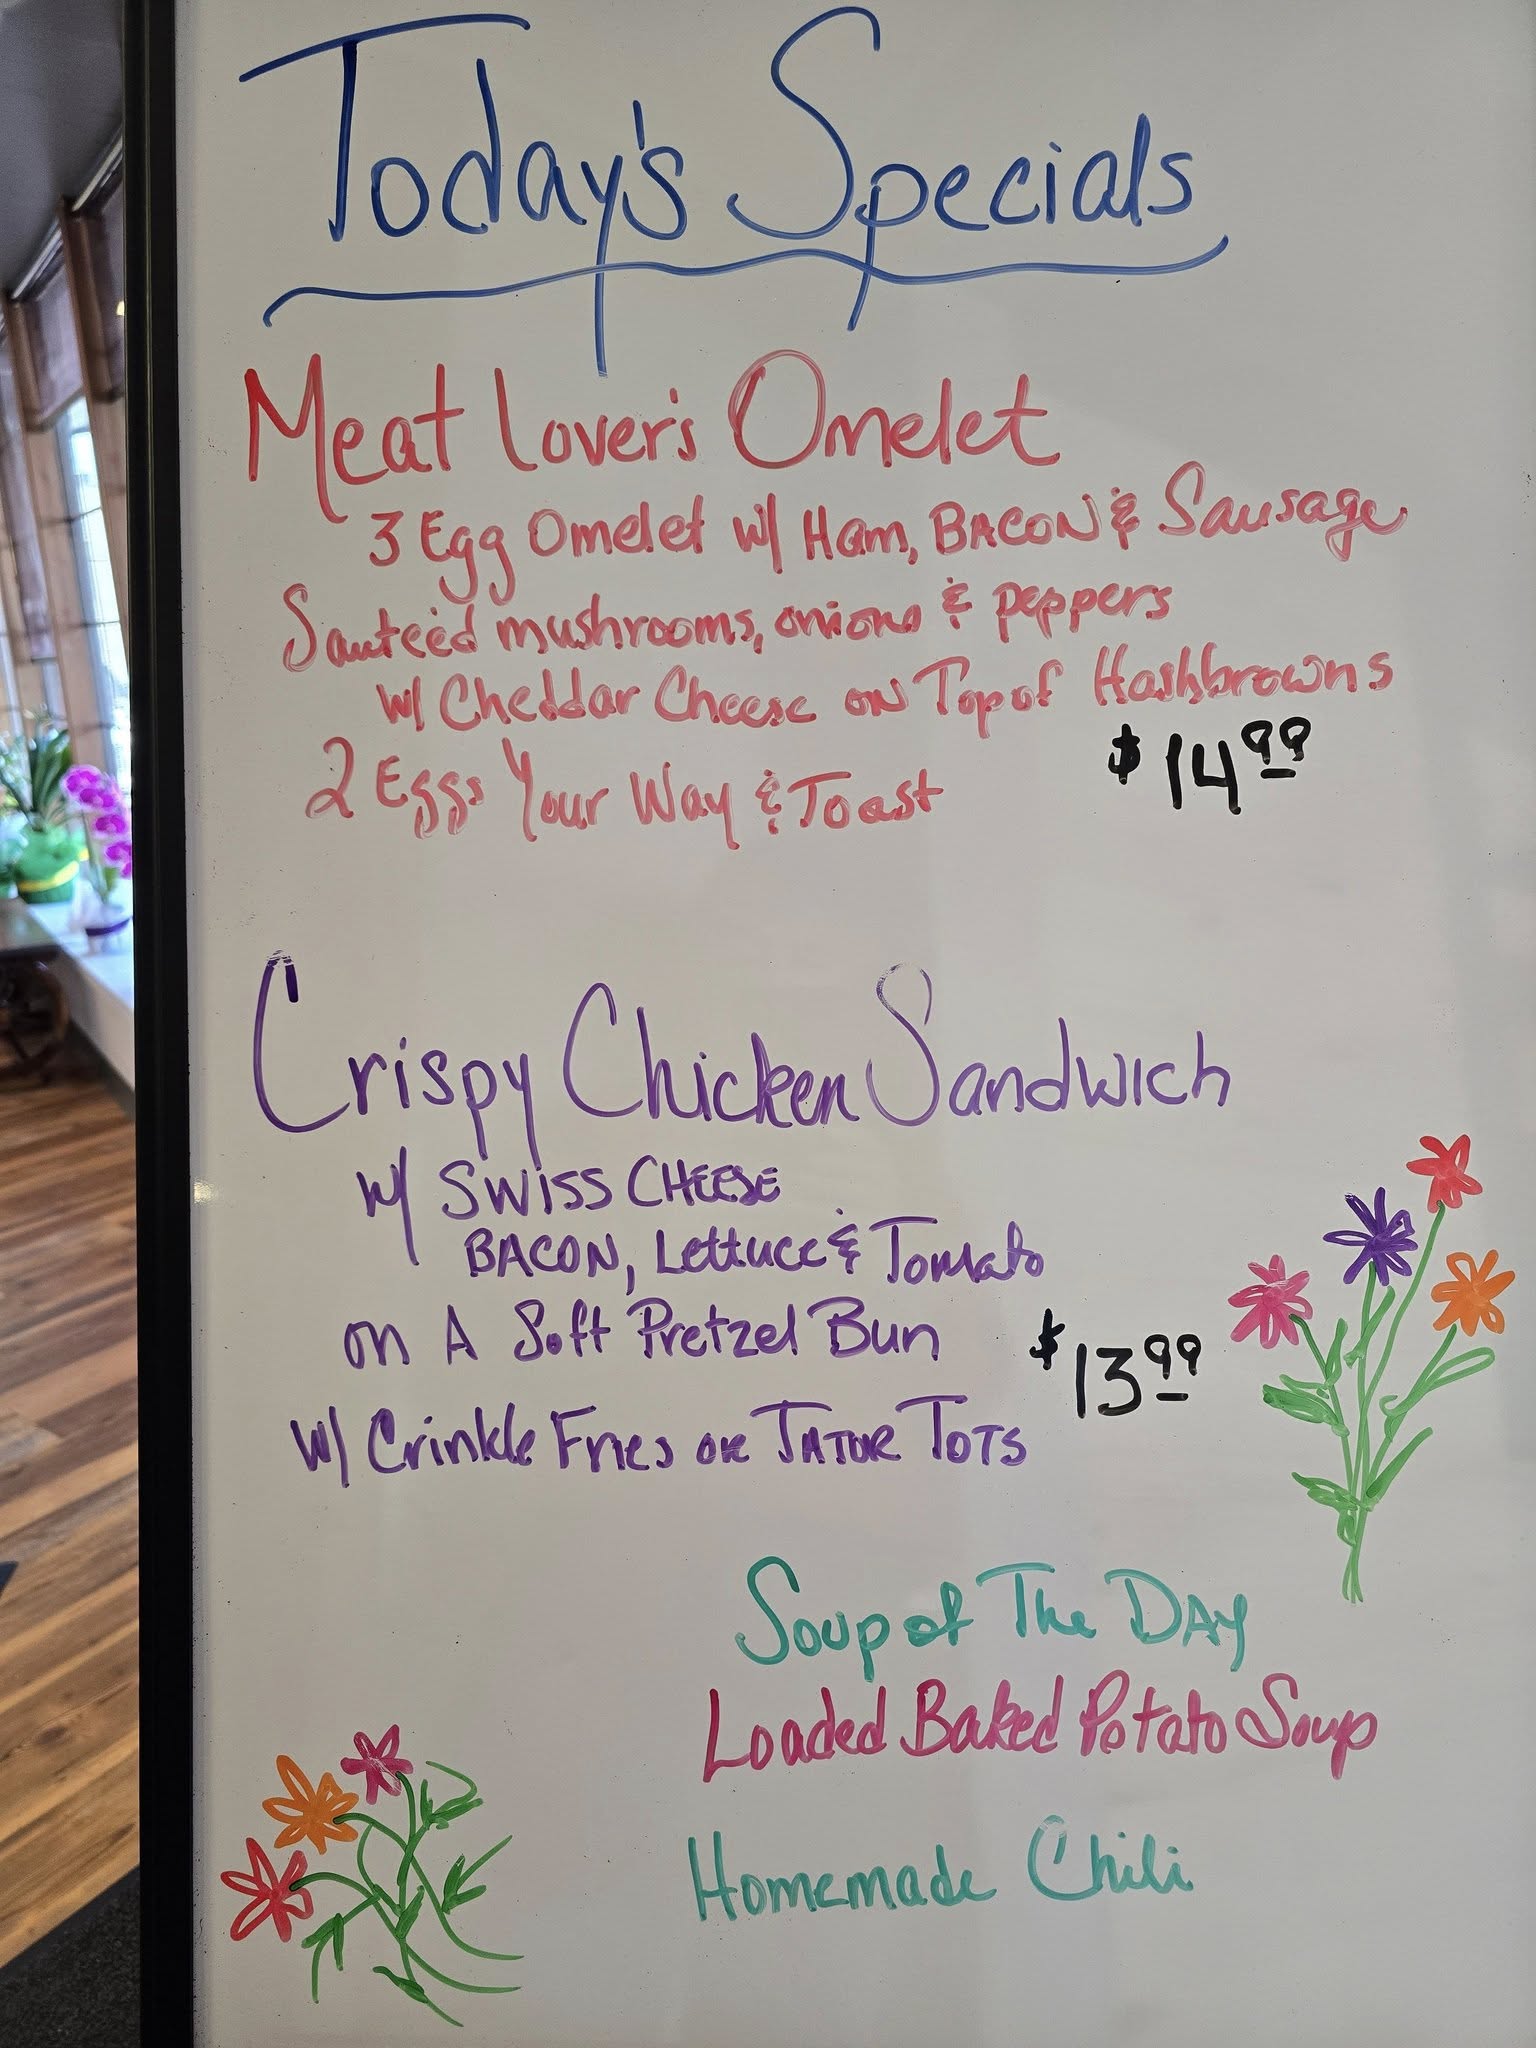 Today's Specials
Meat Lover's Omelet
3 Egg Omelet w/ Ham, BACON & Sausage
Sauteéd mushrooms, onions & peppers
w/ Cheddar Cheese on Top of Hashbrowns
2 Eggs Your Way & Toast
$14.99
Crispy Chicken Sandwich
w/ SWISS CHEESE
BACON, Lettuce & Tomato
on A Soft Pretzel Bun
$13.99
w/ Crinkle Fries or TATOR TOTS
Soup of The DAY
Loaded Baked Potato Soup
Homemade Chili